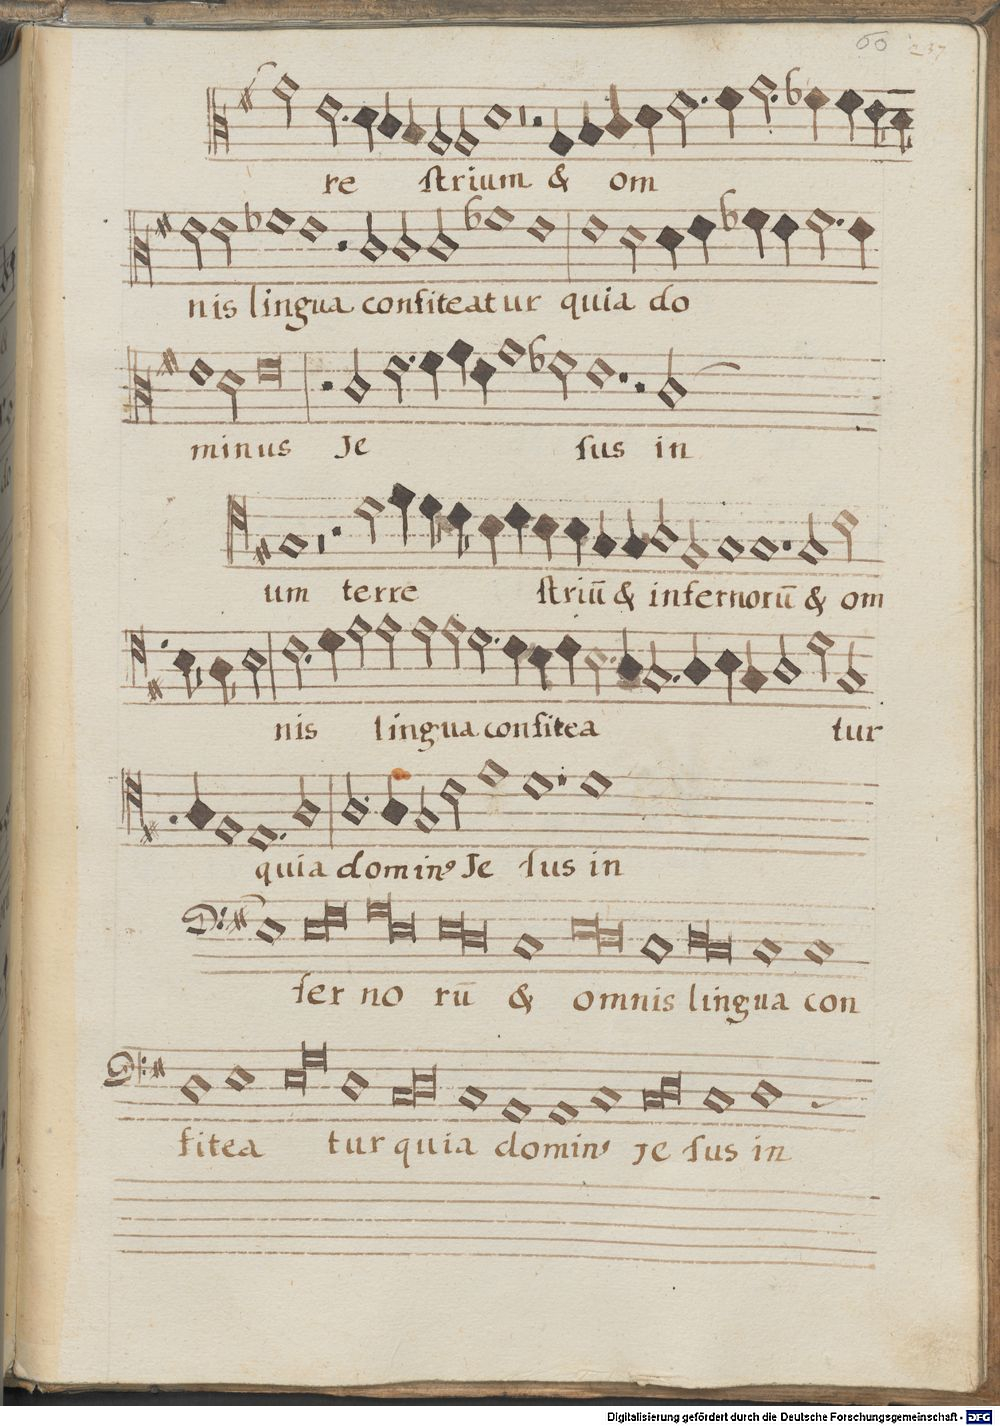 60 237
re strium & om
nis lingua confiteatur quia do
minus Je sus in
um terre striū & infernorū & om
nis lingua confitea tur
quia domin⁹ Je sus in
fer no rū & omnis lingua con
fitea tur quia domin⁹ Je sus in
Digitalisierung gefördert durch die Deutsche Forschungsgemeinschaft - DFG